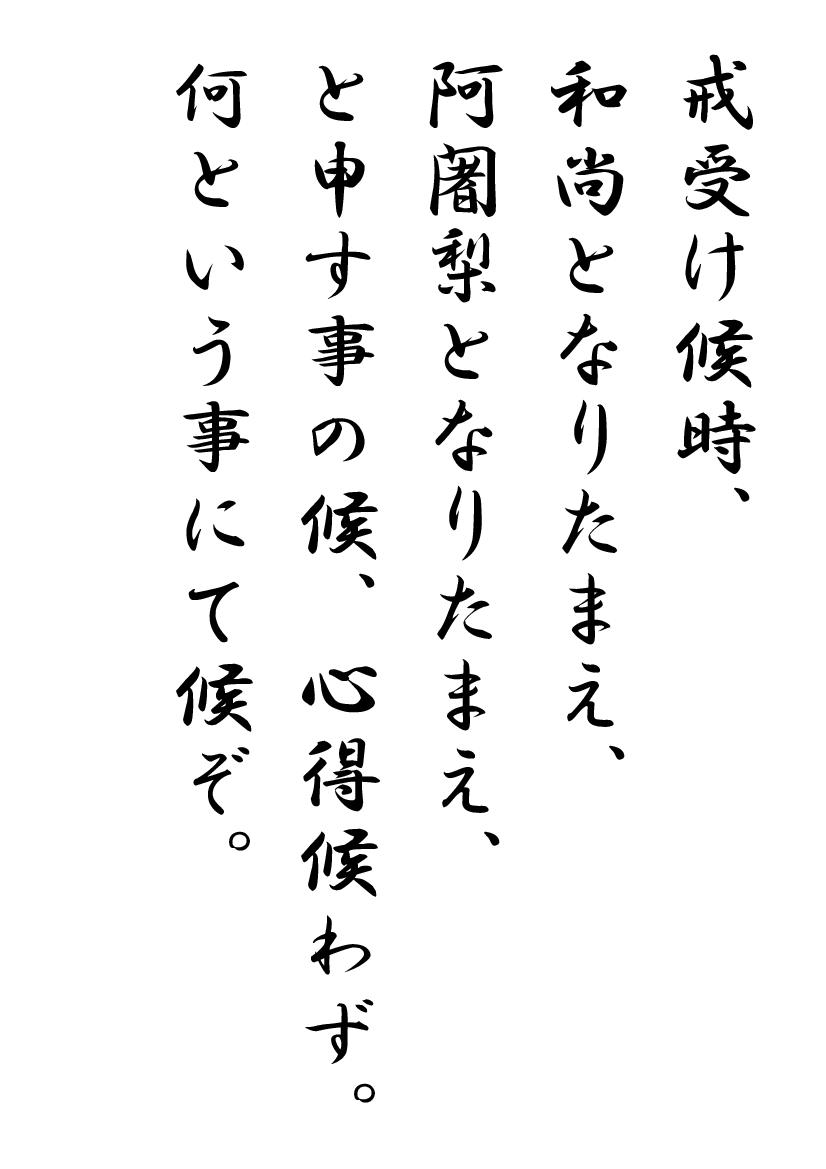 戒受け候時、
和尚となりたまえ、
阿闍梨となりたまえ、
と申す事の候、心得候わず。
何という事にて候ぞ。